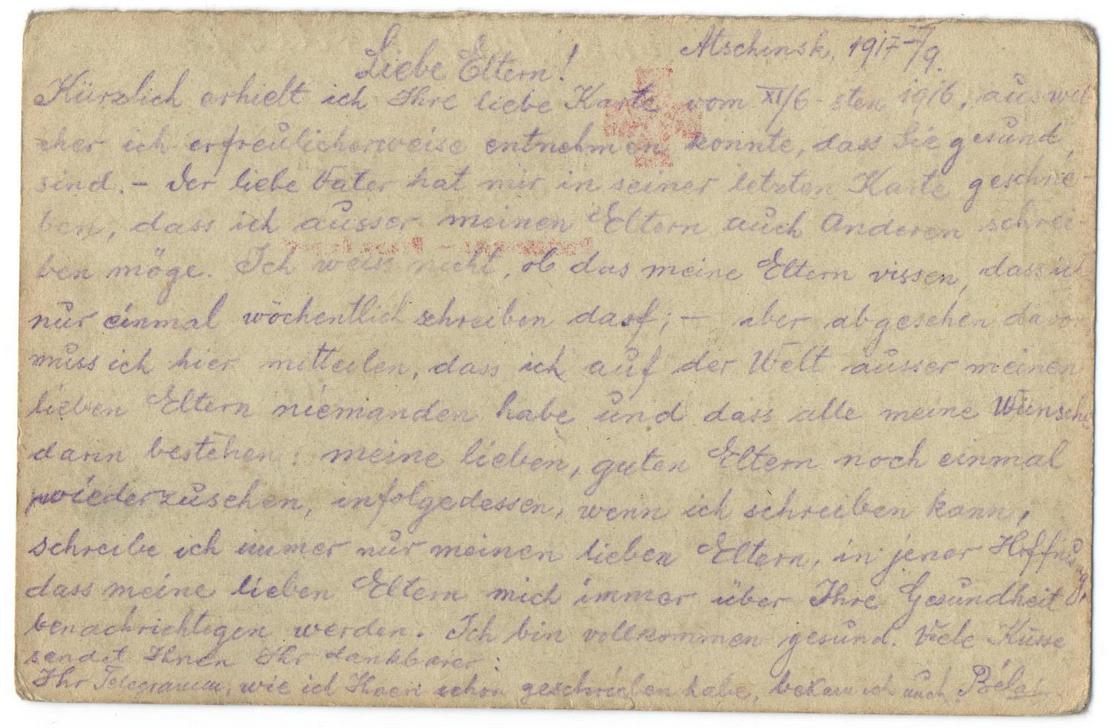 Atschinsk, 1917
Liebe Eltern!
Kürzlich erhielt ich Ihre liebe Karte vom XI/6-sten 1916, aus wel
cher ich erfreulicherweise entnehmen konnte, dass Sie gesund
sind. - Der liebe Vater hat mir in seiner letzten Karte geschrie-
ben, dass ich ausser meinen Eltern auch Anderen schrei-
ben möge. Ich weiss nicht, ob das meine Eltern vissen, dass ich
nur einmal wöchentlich schreiben darf; - aber abgesehen davon
muss ich hier mitteilen, dass ich auf der Welt ausser meinen
lieben Eltern niemanden habe und dass alle meine Wünsche
darin bestehen: meine lieben, guten Eltern noch einmal
wiederzusehen, infolgedessen, wenn ich schreiben kann,
schreibe ich immer nur meinen lieben Eltern, in jener Hoffnung,
dass meine lieben Eltern mich immer über Ihre Gesundheit
benachrichtigen werden. Ich bin vollkommen gesund. Viele Küsse
sendet Ihnen Ihr dankbarer:
Ihr Telegramm, wie ich Ihnen schon geschrieben habe, bekam ich auch. Béla